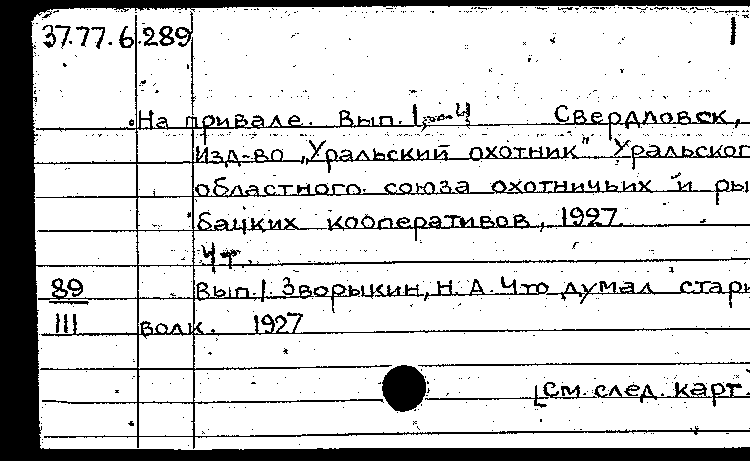 37.77.6.289 1
На привале. Вып. 1,—4 Свердловск,
Изд-во „Уральский охотник" Уральског
областного союза охотничьих и ры
бацких кооперативов, 1927.
4 т.
89 Вып. 1. Зворыкин, Н. А. Что думал стари
III волк. 1927
[См. след. карт.